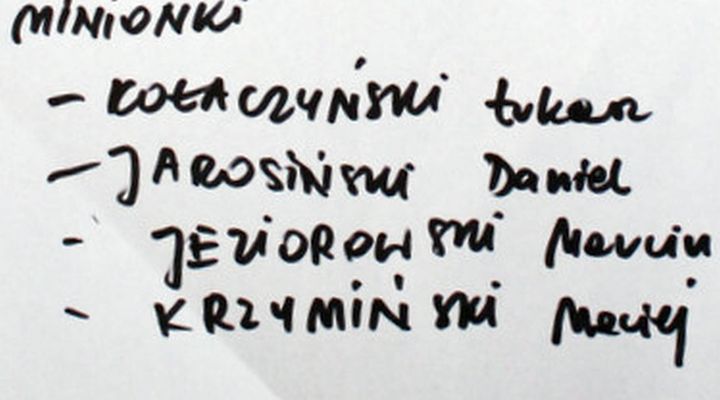 MINIONKI
- KOŁACZYŃSKI Łukasz
- JAROSIŃSKI Daniel
- JEZIOROWSKI Marcin
- KRZYMIŃSKI Maciej